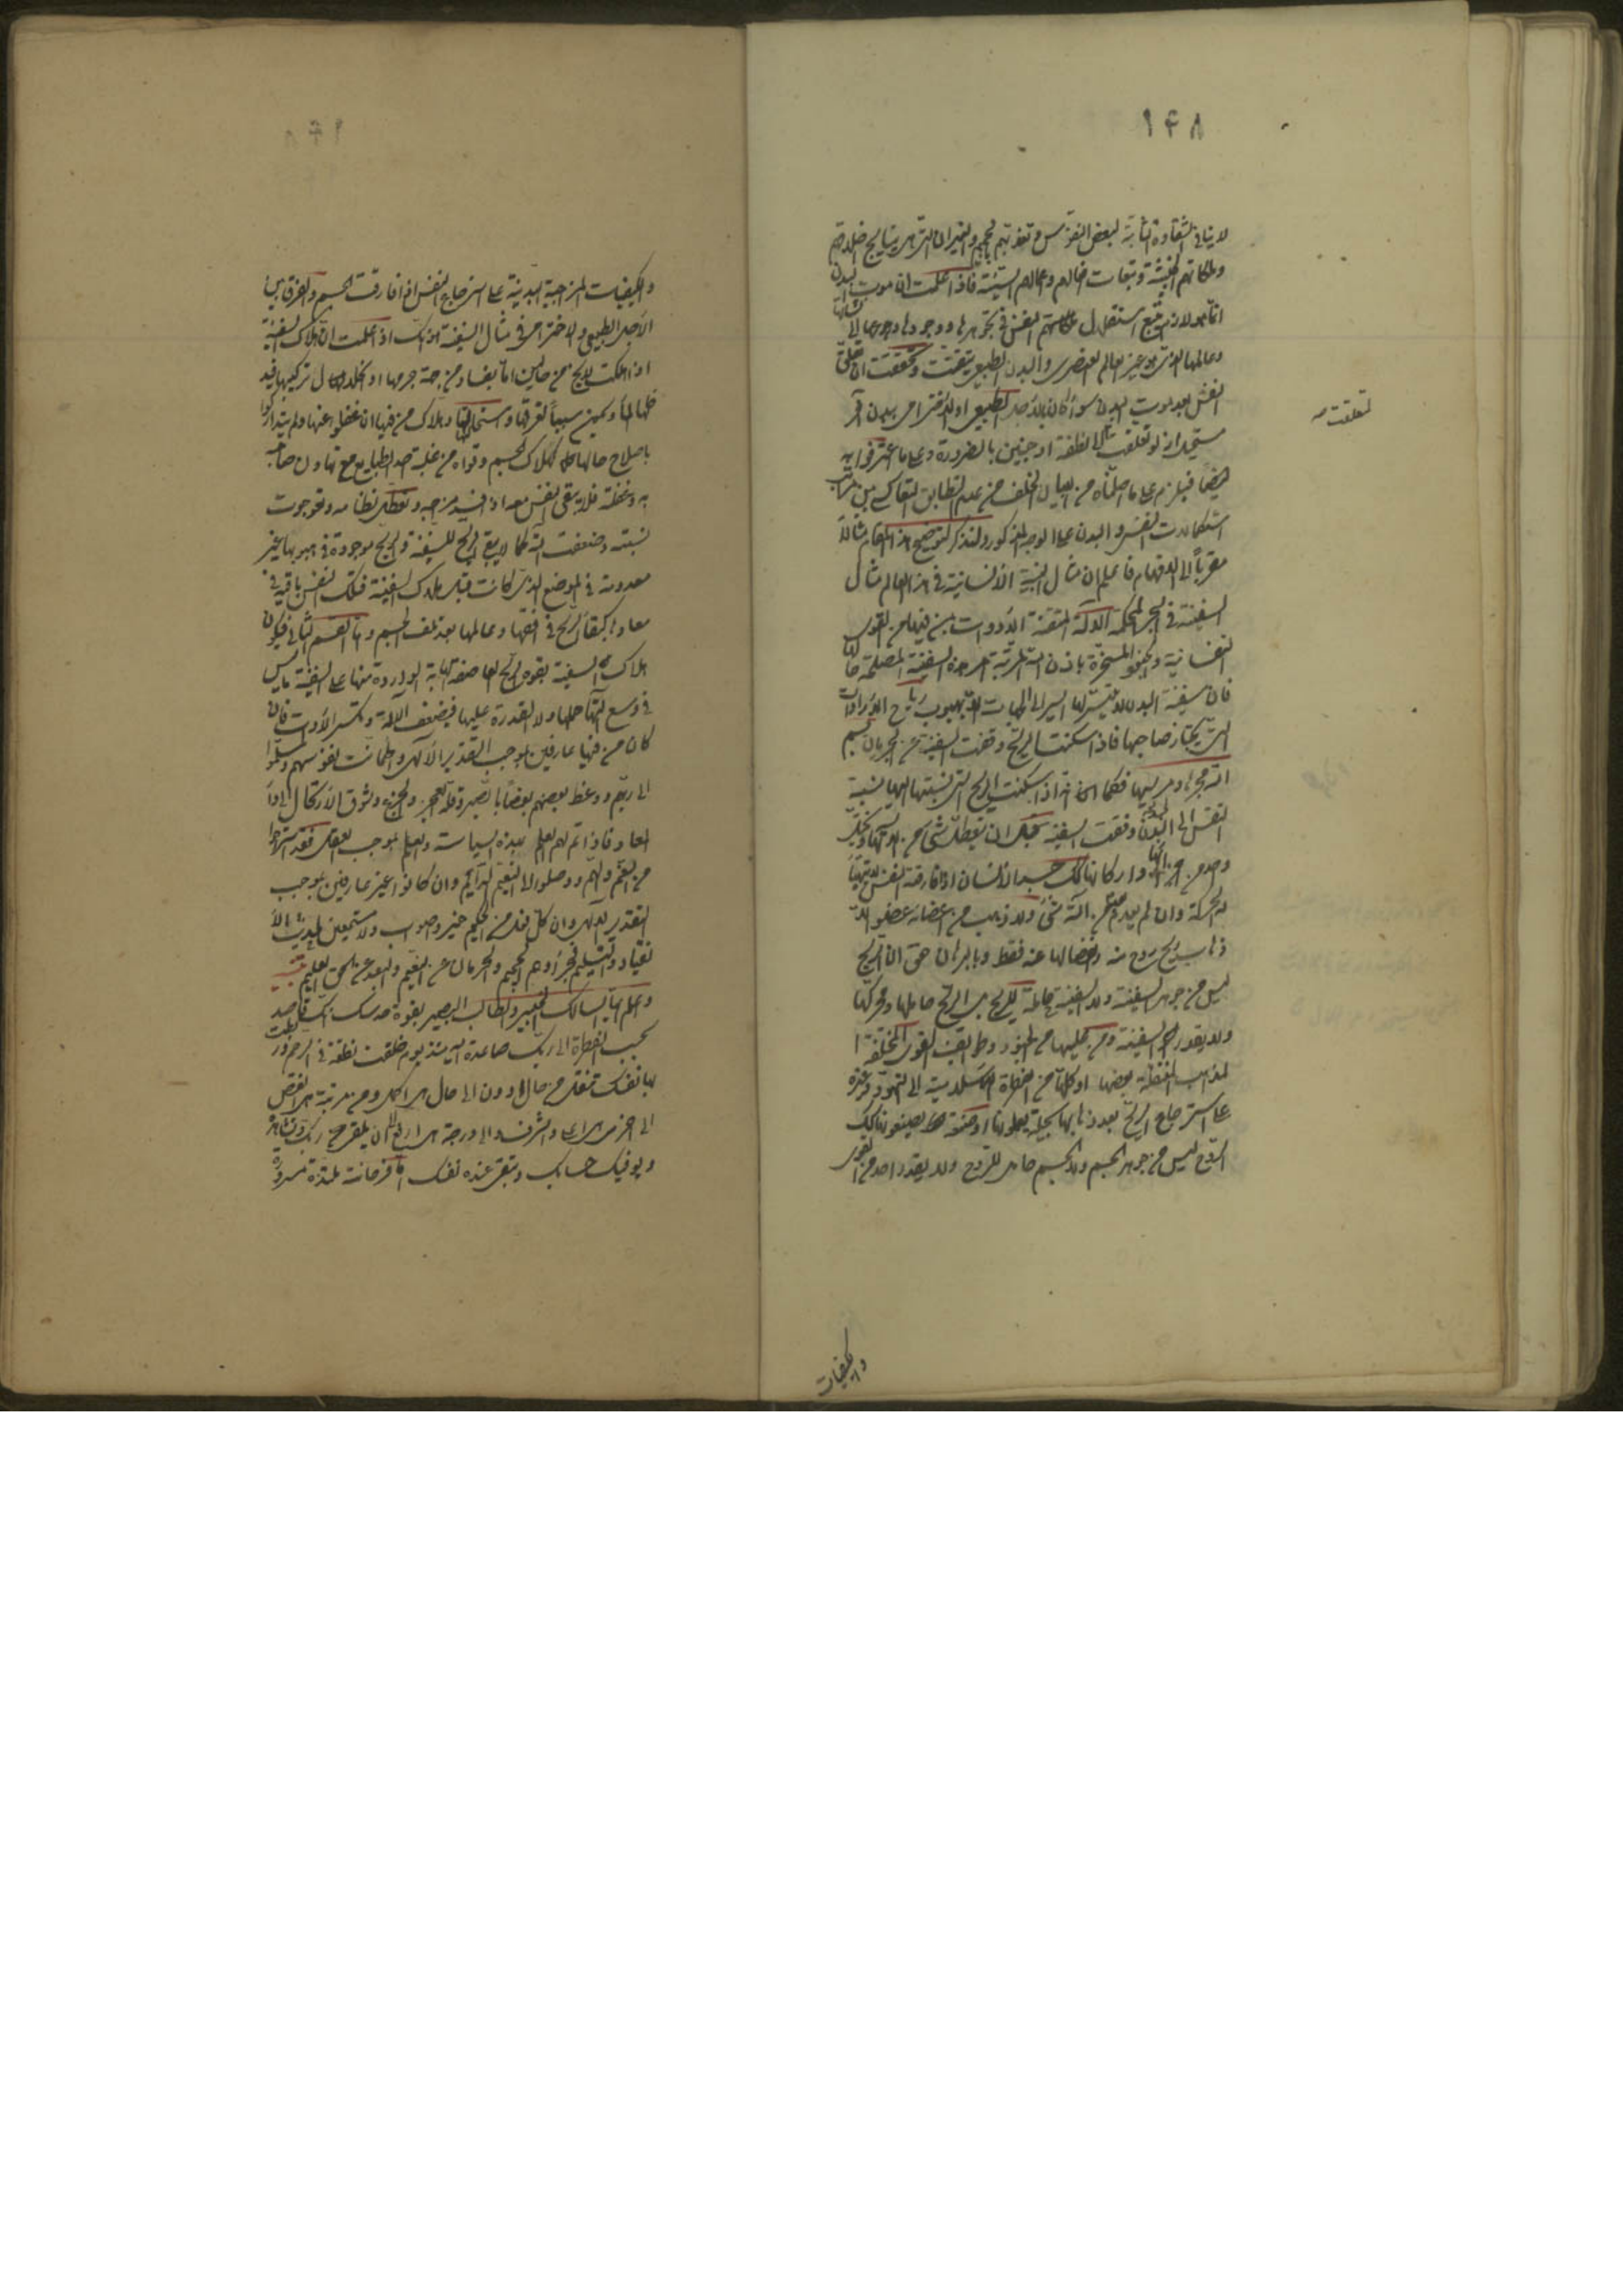 ١٤٨
لا ينافي الشقاوة الثابتة لبعض النفوس وتعذبهم بالجحيم والنيران التي هي نتايج ضلالتهم
وملكاتهم الخبيثة وتبعات افعالهم واعمالهم السيئة فاذا علمت ان موت البدن
انما هو لازم تبع استقلال النفس في تجوهرها ووجودها ورجوعها الى نشأتها
وعالمها الذي هو غير العالم العنصري والبدن الطبيعي تيقنت وتحققت ان تعلق
النفس بعد موت البدن سواء كان بالاجل الطبيعي او الاخترامي ببدن آخر
مستحيل اذ لو تعلقت الى نطفة او جنين بالضرورة وعلى ما اعترفوا به
ايضا فيلزم على ما اصلناه من البيان الخلف من عدم التطابق التعاكسي بين مراتب
استكمالات النفس والبدن على الوجه المذكور ولنذكر لتوضيح هذا المقام مثالا
مقربا الى الافهام فاعلم ان مثال البنية الانسانية في هذا العالم مثال
السفينة في البحر المحكمة الآلة المتقنة الادوات بمن فيها من القوى
النفسانية والجنود المسخرة باذن الله المرتبة امر هذه السفينة المصلحة حالها
فان سفينة البدن لا يتيسر لها السير الى الجهات الا بهبوب رياح الارادات
التي يختار صاحبها فاذا سكنت الريح وقفت السفينة عن الجريان بسم
الله مجراها ومرسيها فكما انه اذا سكنت الريح التي نسبتها اليها نسبة
النفس الى البدن وقفت السفينة قبل ان يتعطل شيء من آلاتها ويختل
واحد من اركانها كذلك جسد الانسان اذا فارقته النفس لا يتهيأ
له الحركة وان لم يعدم من آلته شيء ولا ذهب من اعضائه عضو الا
ذهاب ريح روح منه وانفصالها عنه فقط وبالبرهان حق ان الريح
ليس من جوهر السفينة ولا السفينة حاملة للريح بل الريح حاملها ومحركها
ولا يقدر السفينة ومن عليها من الجنود وطرايف القوى المختلفة
على استرجاع الريح بعد ذهابها بحيلة يعملونها او صنعة يصنعونها كذلك
الروح ليس من جوهر الجسم ولا الجسم حامل للروح ولا يقدر احد من القوى
والكيفيات
تعلقت
والكيفيات المزاجية البدنية على استرجاع النفس اذا فارقت الجسم والفرق بين
الاجل الطبيعي والاخترامي في مثال السفينة انك اذا علمت ان هلاك السفينة
اذا هلكت لا يخ من حالين اما بفساد من جهة جرمها او انحلال تركيبها فيد
خلها الماء ويكون سببا لغرقها واستحالتها وهلاك من فيها ان غفلوا عنها ولم يتداركوا
باصلاح حالها كهلاك الجسم وقواه من غلبة احد الطبايع مع تهاون صاحبه
به وغفلته فلا يبقى النفس معه اذا فسد مزاجه وتعطل نظامه وتعوجت
نسبته وضعفت آلته كما لا يبقى الريح للسفينة والريح موجودة في هبوبها غير
معدومة في الموضع الذي كانت قبل هلاك السفينة فكذلك النفس باقية في
معادها كبقاء الريح في افقها وعالمها بعد تلف الجسم واما القسم الثاني فيكون
هلاك السفينة بقوة الريح العاصفة الهابة الواردة منها على السفينة ما ليس
في وسع آلتها حملها ولا القدرة عليها فيضعف الآلة وتكسر الادوات فان
كان من فيها عارفين بموجب التقدير الالهي واطمأنت نفوسهم وسلموا
الى ربهم ووعظ بعضهم بعضا بالصبر وقلة الجزع والشوق للارتحال الى دار
المعاد فاذا تم لهم العلم بهذه السياسة والعلم بموجب العقل فقد استراحوا
من الغم والهم ووصلوا الى النعيم الدائم وان كانوا غير عارفين بموجب
التقدير الالهي وان كل فعل من الحكيم خير وصواب ولا مستمعين لحديث الا
نقياد والتسليم فجزاؤهم الجحيم والحرمان عن النعيم والبعد عن الحق العليم تنبيه
واعلم ايها السالك الخبير والطالب البصير بقوة حدسك انك قاصد
بحسب الفطرة الى ربك صاعدا اليه منذ يوم خلقت نطفة في الرحم وربطت
بها نفسك تنتقل من حال ادون الى حال هي اكمل ومن مرتبة هي انقص
الى اخرى هي اعلى واشرف والى درجة هي ارفع الى ان تلقى ربك وتشاهده
ويوفيك حسابك وتبقى عنده نفسك اما فرحانة ملتذة مسرورة